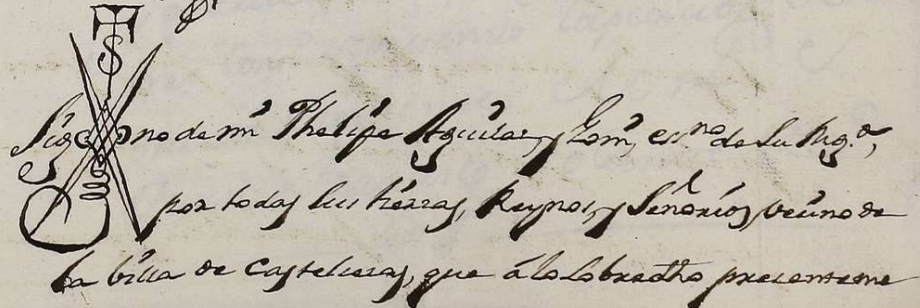 Sig no de mi Phelipe Aguilar, y Rom, essno de Su Mgd,
por todas sus tierras, Reynos, y Señorios, vecino de
la billa de Castelseras, que á lo sobre dho presente me